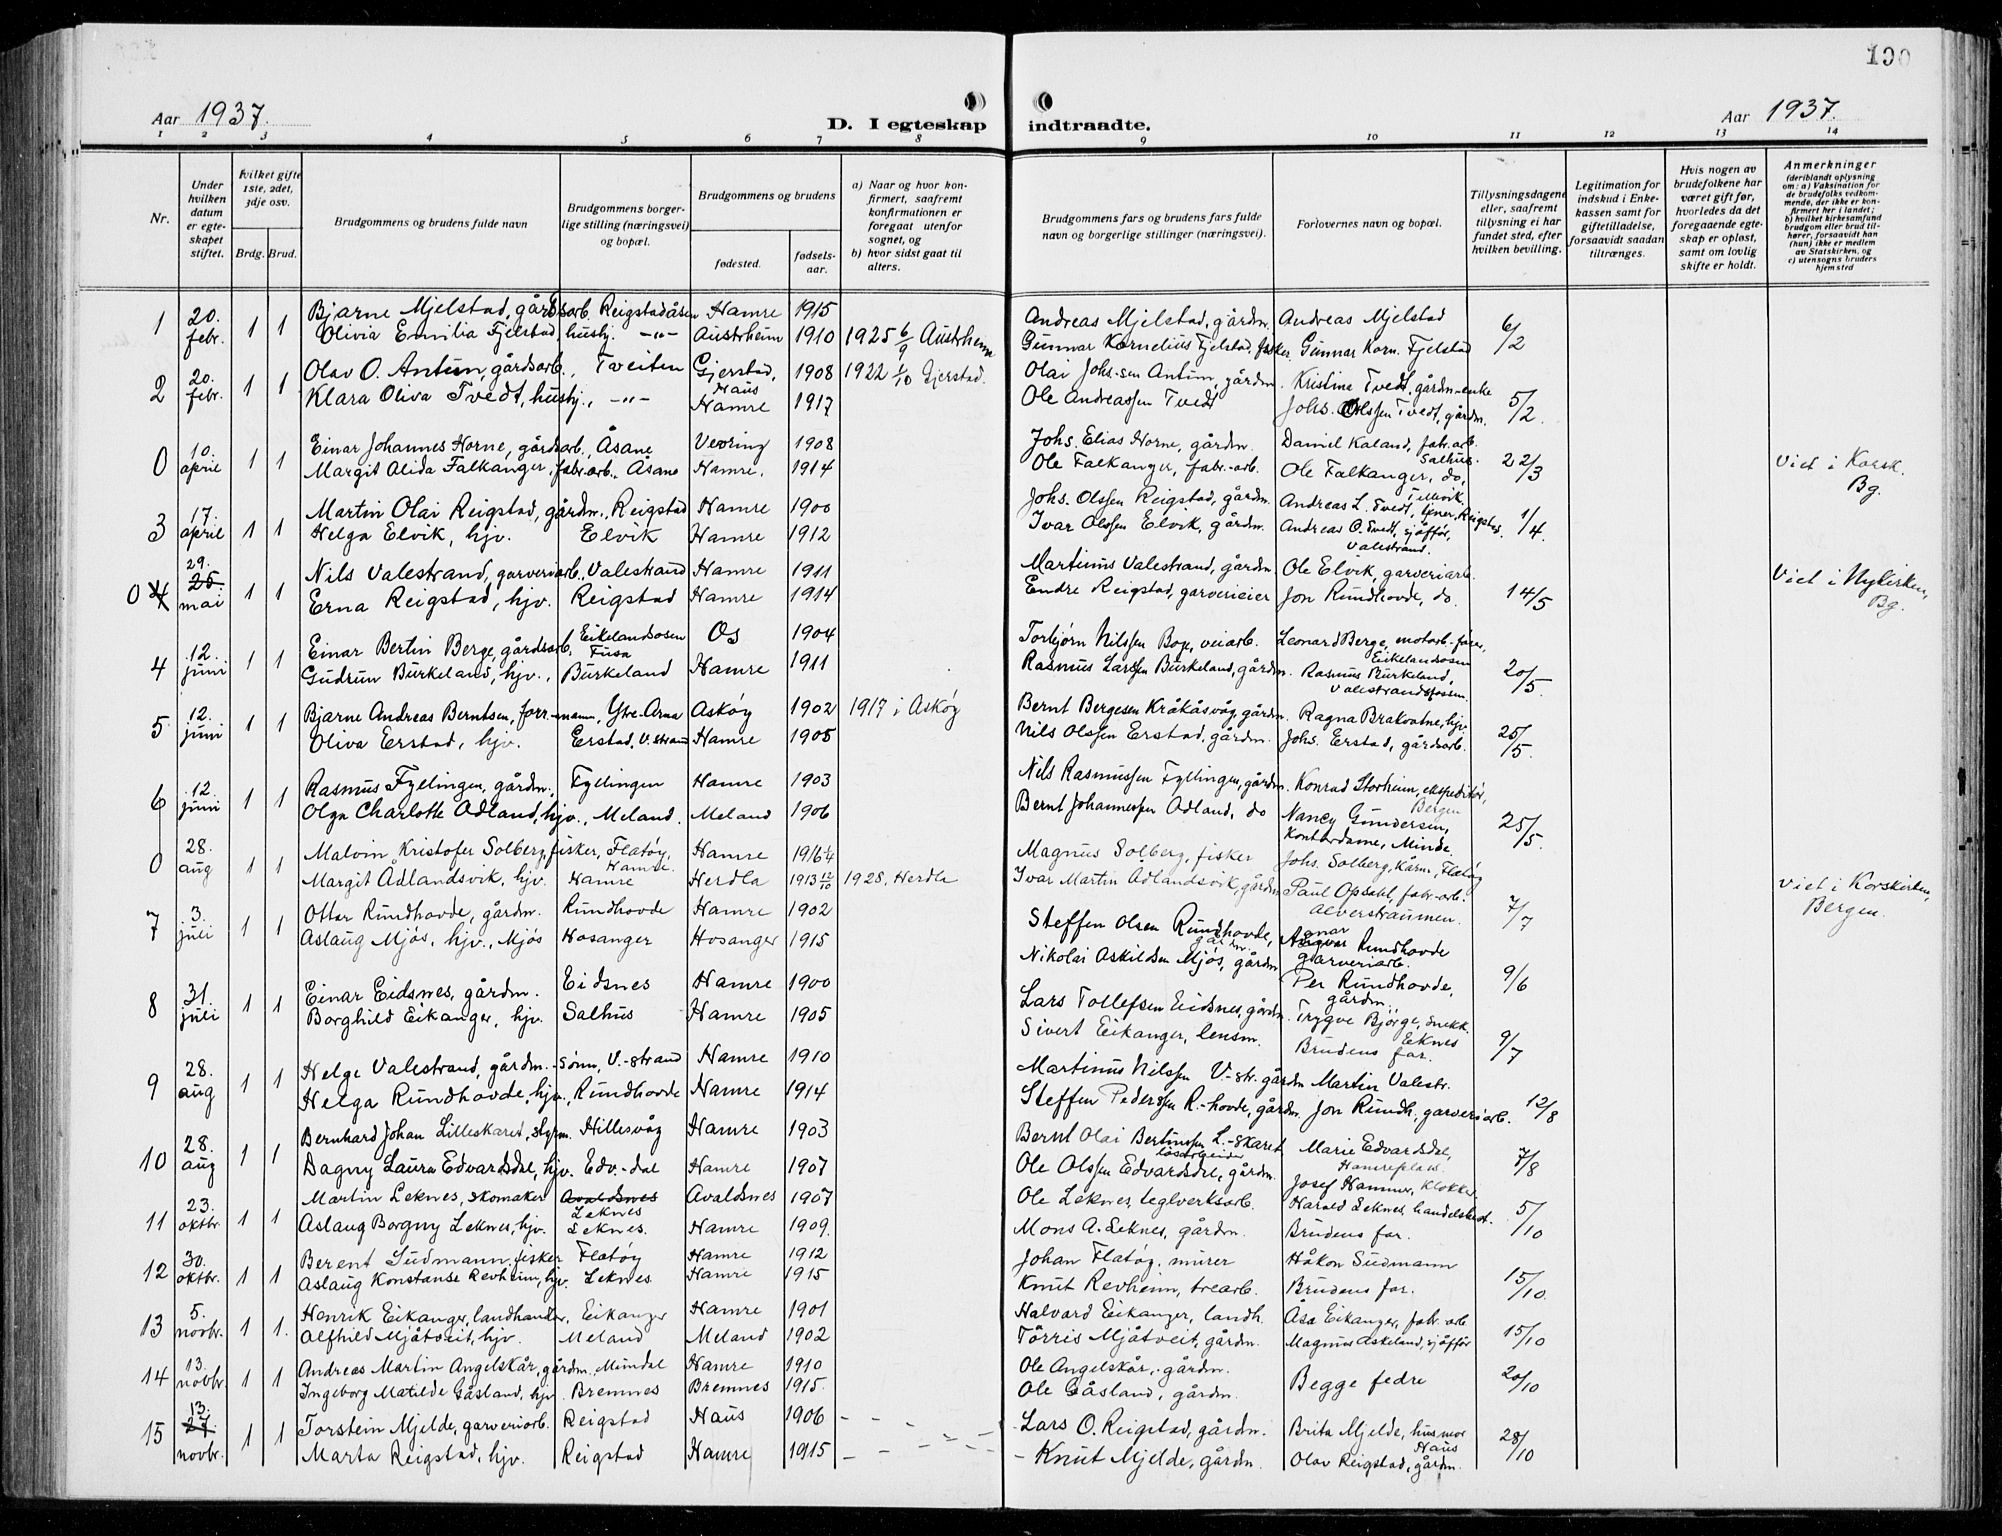 190
Aar 1937.
D. I egteskap indtraadte.
Aar 1937.
1 2 3 4 5 6 7 8 9 10 11 12 13 14
Nr.
Under hvilken datum er egteskapet stiftet.
Hvilket gifte 1ste, 2det, 3dje osv.
Brdg. Brud.
Brudgommens og brudens fulde navn
Brudgommens borgerlige stilling (næringsvei) og bopæl.
Brudgommens og brudens
fødested.
fødselsaar.
a) Naar og hvor konfirmert, saafremt konfirmationen er foregaat utenfor sognet, og
b) hvor sidst gaat til alters.
Brudgommens fars og brudens fars fulde navn og borgerlige stillinger (næringsvei).
Forlovernes navn og bopæl.
Tillysningsdagene eller, saafremt tillysning ei har fundet sted, efter hvilken bevilling.
Legitimation for indskud i Enkekassen samt for giftetilladelse, forsaavidt saadan tiltrænges.
Hvis nogen av brudefolkene har været gift før, hvorledes da det foregaaende egteskap er opløst, samt om lovlig skifte er holdt.
Anmerkninger
(deriblandt oplysning om: a) Vaksination for de brudefolks vedkommende, der ikke er konfirmert her i landet; b) hvilket kirkesamfund brudgom eller brud tilhører, forsaavidt han (hun) ikke er medlem av Statskirken, og c) utensogns bruders hjemsted
1 20. febr. 1 1 Bjarne Mjelstad, gårdsarb. Reigstadåsen Hamre 1915 Andreas Mjelstad, gårdm. Andreas Mjelstad 6/2
Olivia Emilia Fjelstad, husbj. -"- Austrheim 1910 1925 6/9 Austrheim Gunnar Kornelius Fjelstad, fisker Gunnar Korn. Fjelstad
2 20. febr. 1 1 Olav O. Antun, gårdsarb., Tveiten Gjerstad, Haus 1908 1922 1/10 Gjerstad. Olai Johs-sen Antun, gårdm. Kristina Tvedt, gårdm-enke 5/2
Klara Oliva Tvedt, husbj., -"- Hamre 1917 Ole Andreassen Tvedt Johs. Olssen Tvedt, gårdm.
0 10. april 1 1 Einar Johannes Horne, gårdsarb., Åsane Vevring 1908 Johs. Elias Horne, gårdm. Daniel Kaland, fabr.arb. Salhus. 22/3 Viet i Korsk. Bg.
Margit Alida Falkanger, fabr.arb., Åsane Hamre. 1914 Ole Falkanger, fabr.-arb. Ole Falkanger, do,
3 17. april 1 1 Martin Olai Reigstad, gårdm., Reigstad Hamre 1900 Johs. Olssen Reigstad, gårdm. Andreas L. Tvedt, Reigstad. 1/4.
Helga Elvik, hjv. Elvik Hamre 1912 Ivar Olssen Elvik, gårdm. Andreas O. Tvedt, sjåffør, Valestrand.
0 4 29. 25 mai 1 1 Nils Valestrand, garveriarb., Valestrand Hamre 1911 Martinus Valestrand, gårdm. Ole Elvik, garveriarb. 14/5 Viet i Nykirken, Bg.
Erna Reigstad, hjv. Reigstad Hamre 1914 Endre Reigstad, garverieier Jon Rundhovde, do.
4 12. juni 1 1 Einar Bertin Berge, gårdsarb. Eikelandsosen Fusa Os 1904 Torbjørn Nilssen Boge, veiarb. Leonard Berge, motorb.-fører, Eikelandsosen 20/5.
Gudrun Burkeland, hjv., Burkeland Hamre 1911 Rasmus Larssen Burkeland, gårdm. Rasmus Burkeland, Valestrandsfossen.
5 12. juni 1 1 Bjarne Andreas Berntsen, forr.-mann, Ytre-Arna Askøy 1902 1917 i Askøy Bernt Bergesen Kråkåsvåg, gårdm. Ragna Brakvatne, hjv. 25/5.
Oliva Erstad, hjv. Erstad, V.strand Hamre 1905 Nils Olssen Erstad, gårdm. Johs. Erstad, gårdsarb.
6 12. juni 1 1 Rasmus Fyllingen, gårdm., Fyllingen Hamre 1903 Nils Rasmussen Fyllingen, gårdm. Konrad Storheim, ekspeditør, Bergen 25/5.
Olga Charlotte Ådland, hjv., Meland. Meland 1906 Bernt Johannessen Ådland, do Nancy Gundersen, kontordame, Minde.
0 28. aug 1 1 Malvin Kristofer Solberg, fisker, Flatøy, Hamre. Hamre 1916 1/4 Magnus Solberg, fisker Johs. Solberg, Flatøy Viet i Korskirken, Bergen.
Margit Ådlandsvik, hjv. Hamre Herdla 1913 12/10 1928, Herdla Ivar Martin Ådlandsvik, gårdm Paul Opsahl, fabr.-arb. Alverstraumen. 7/7
7 3. juli 1 1 Ottar Rundhovde, gårdm. Rundhovde Hamre 1902 Steffen Olsen Rundhovde, gårdm. Rundhovde garveriarb.
Aslaug Mjøs, hjv., Mjøs Hosanger Hosanger 1915 Nikolai Askildsen Mjøs, gårdm Per Rundhovde, gårdm. 9/6
8 31. juli 1 1 Einar Eidsnes, gårdm. Eidsnes Hamre 1900 Lars Tollefsen Eidsnes, gårdm. Trygve Bjørge, snekk. Eknes
Borghild Eikanger, hjv. Salhus Hamre 1905 Sivert Eikanger, lensm. Brudens far. 9/7
9 28. aug 1 1 Helge Valestrand, gårdm.-sønn, V.-strand Hamre 1910 Martinus Nilssen V-str. gårdm Martin Valestr.
Helga Rundhovde, hjv., Rundhovde Hamre 1914 Steffen Pederssen R.-hovde, gårdm. Jon Rundh., garveriarb. 12/8
10 28. aug 1 1 Bernhard Johan Lilleskaret, styrm. Hillesvåg Hamre 1903 Bernt Olai Bertinssen L.-skaret løsarbeider Marie Edvardsdal, Hamreplass. 7/8
Dagny Laura Edvardsdal, hjv. Edv.-dal Hamre 1907 Ole Olssen Edvardsdal, gårdm. Josef Hammer, klokker
11 23. oktbr 1 1 Martin Leknes, skomaker Avaldsnes Leknes Avaldsnes 1907 Ole Leknes, teglverksarb. Harald Leknes, handelsbest. 5/10
Aslaug Borgny Leknes, hjv. Leknes. Hamre 1909. Mons A. Leknes, gårdm. Brudens far.
12 30. oktbr. 1 1 Berent Sudmann, fisker Flatøy Hamre 1912 Johan Flatøy, murer Håkon Sudmann 15/10
Aslaug Konstanse Revheim, hjv. Leknes. Hamre 1915 Knut Revheim, trearb. Brudens far.
13 5. novbr. 1 1. Henrik Eikanger, landhandler, Eikanger Hamre 1901 Halvard Eikanger, landh. Åsa Eikanger, fabr. arb 15/10
Alfhild Mjåtveit, hjv. Meland Meland 1902 Tørris Mjåtveit, gårdm. Magnus Askeland, sjåffør
14 13. novbr. 1 1 Andreas Martin Angelskår, gårdm. Mundal Hamre 1910 Ole Angelskår, gårdm. Begge fedre 20/10
Ingeborg Matilde Gåsland, hjv. Bremnes Bremnes 1915. Ole Gåsland, gårdm.
15 13. 27. novbr. 1 1 Torstein Mjelde, garveriarb. Reigstad Haus 1906 - Lars O. Reigstad, gårdm. Brita Mjelde, husmor Haus 28/10
Marta Reigstad, hjv. Reigstad Hamre 1915 - Knut Mjelde, gårdm. Olav Reigstad, gårdm.